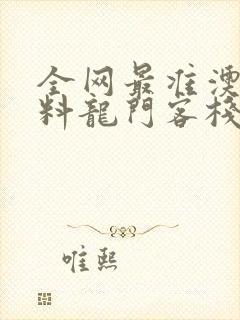 全网最准澳
料龍門客棧
唯熙